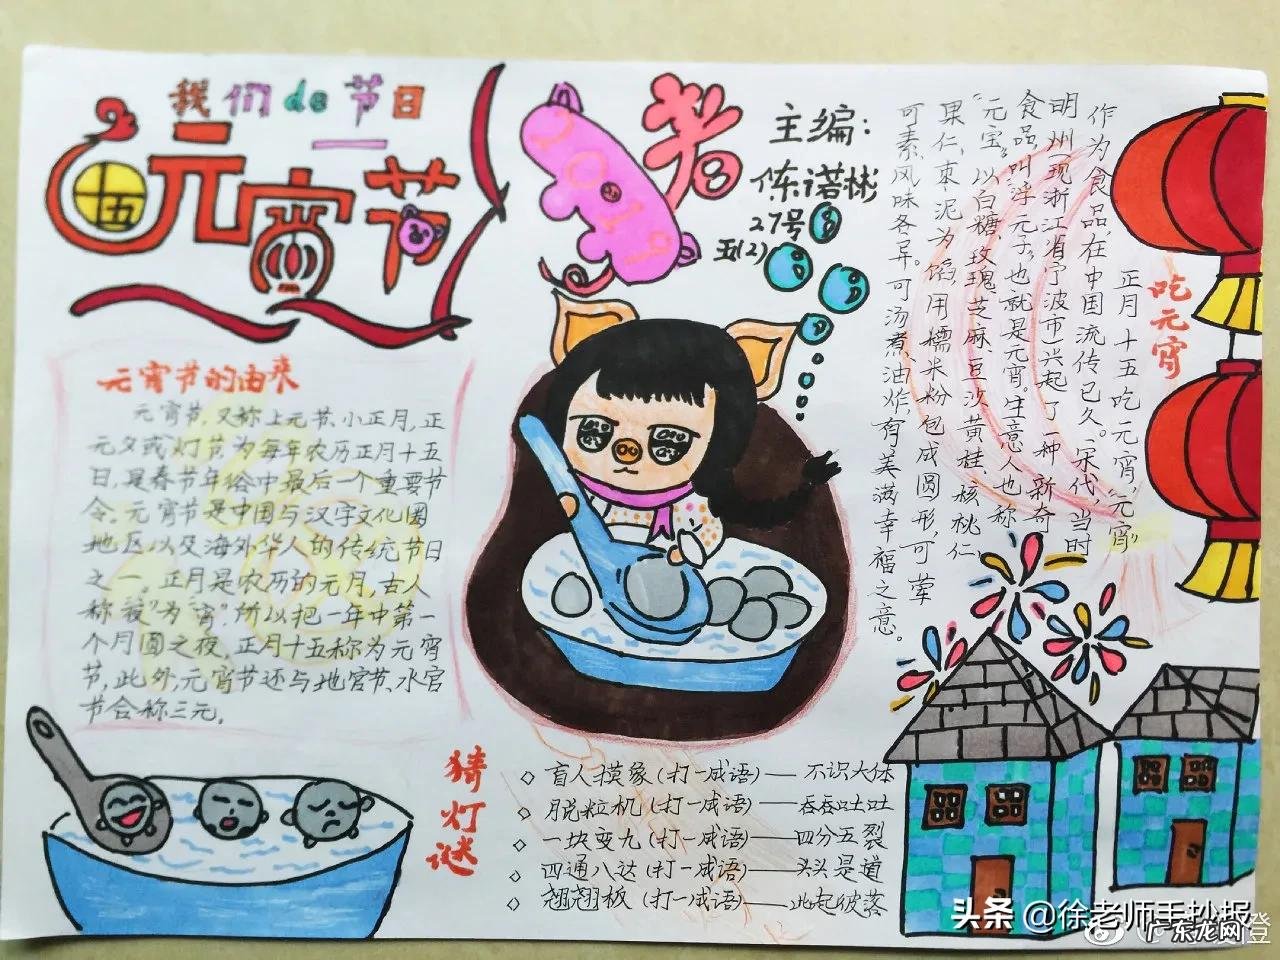 我们de节日
元宵节
十五
2019
猪
主编:
陈诺彬
27号
五(2)
元宵节的由来
元宵节,又称上元节、小正月,正
元夕或灯节为每年农历正月十五
日,是春节年俗中最后一个重要节
令。元宵节是中国与汉字文化圈
地区以及海外华人的传统节日
之一。正月是农历的元月,古人
称"夜"为"宵"所以把一年中第一
个月圆之夜,正月十五称为元宵
节,此外,元宵节还与地宫节、水宫
节合称三元。
吃元宵
正月十五吃元宵,"元宵"
作为食品,在中国流传已久。宋代,当时
明州(现浙江省宁波市)兴起了一种新奇
食品,叫"浮元子",也就是元宵。生意人也称
"元宝"。以白糖、玫瑰、芝麻、豆沙、黄桂、核桃仁、
果仁、枣泥为馅,用糯米粉包成圆形,可荤
可素、风味各异。可汤煮、油炸,有美满幸福之意。
猜灯谜
◇ 盲人摸象(打一成语)—不识大体
◇ 脱粒机(打一成语)—吞吞吐吐
◇ 一块变九(打一成语)—四分五裂
◇ 四通八达(打一成语)—头头是道
◇ 翘翘板(打一成语)—此起彼落
头条 @徐老师手抄报
广东龙网
登